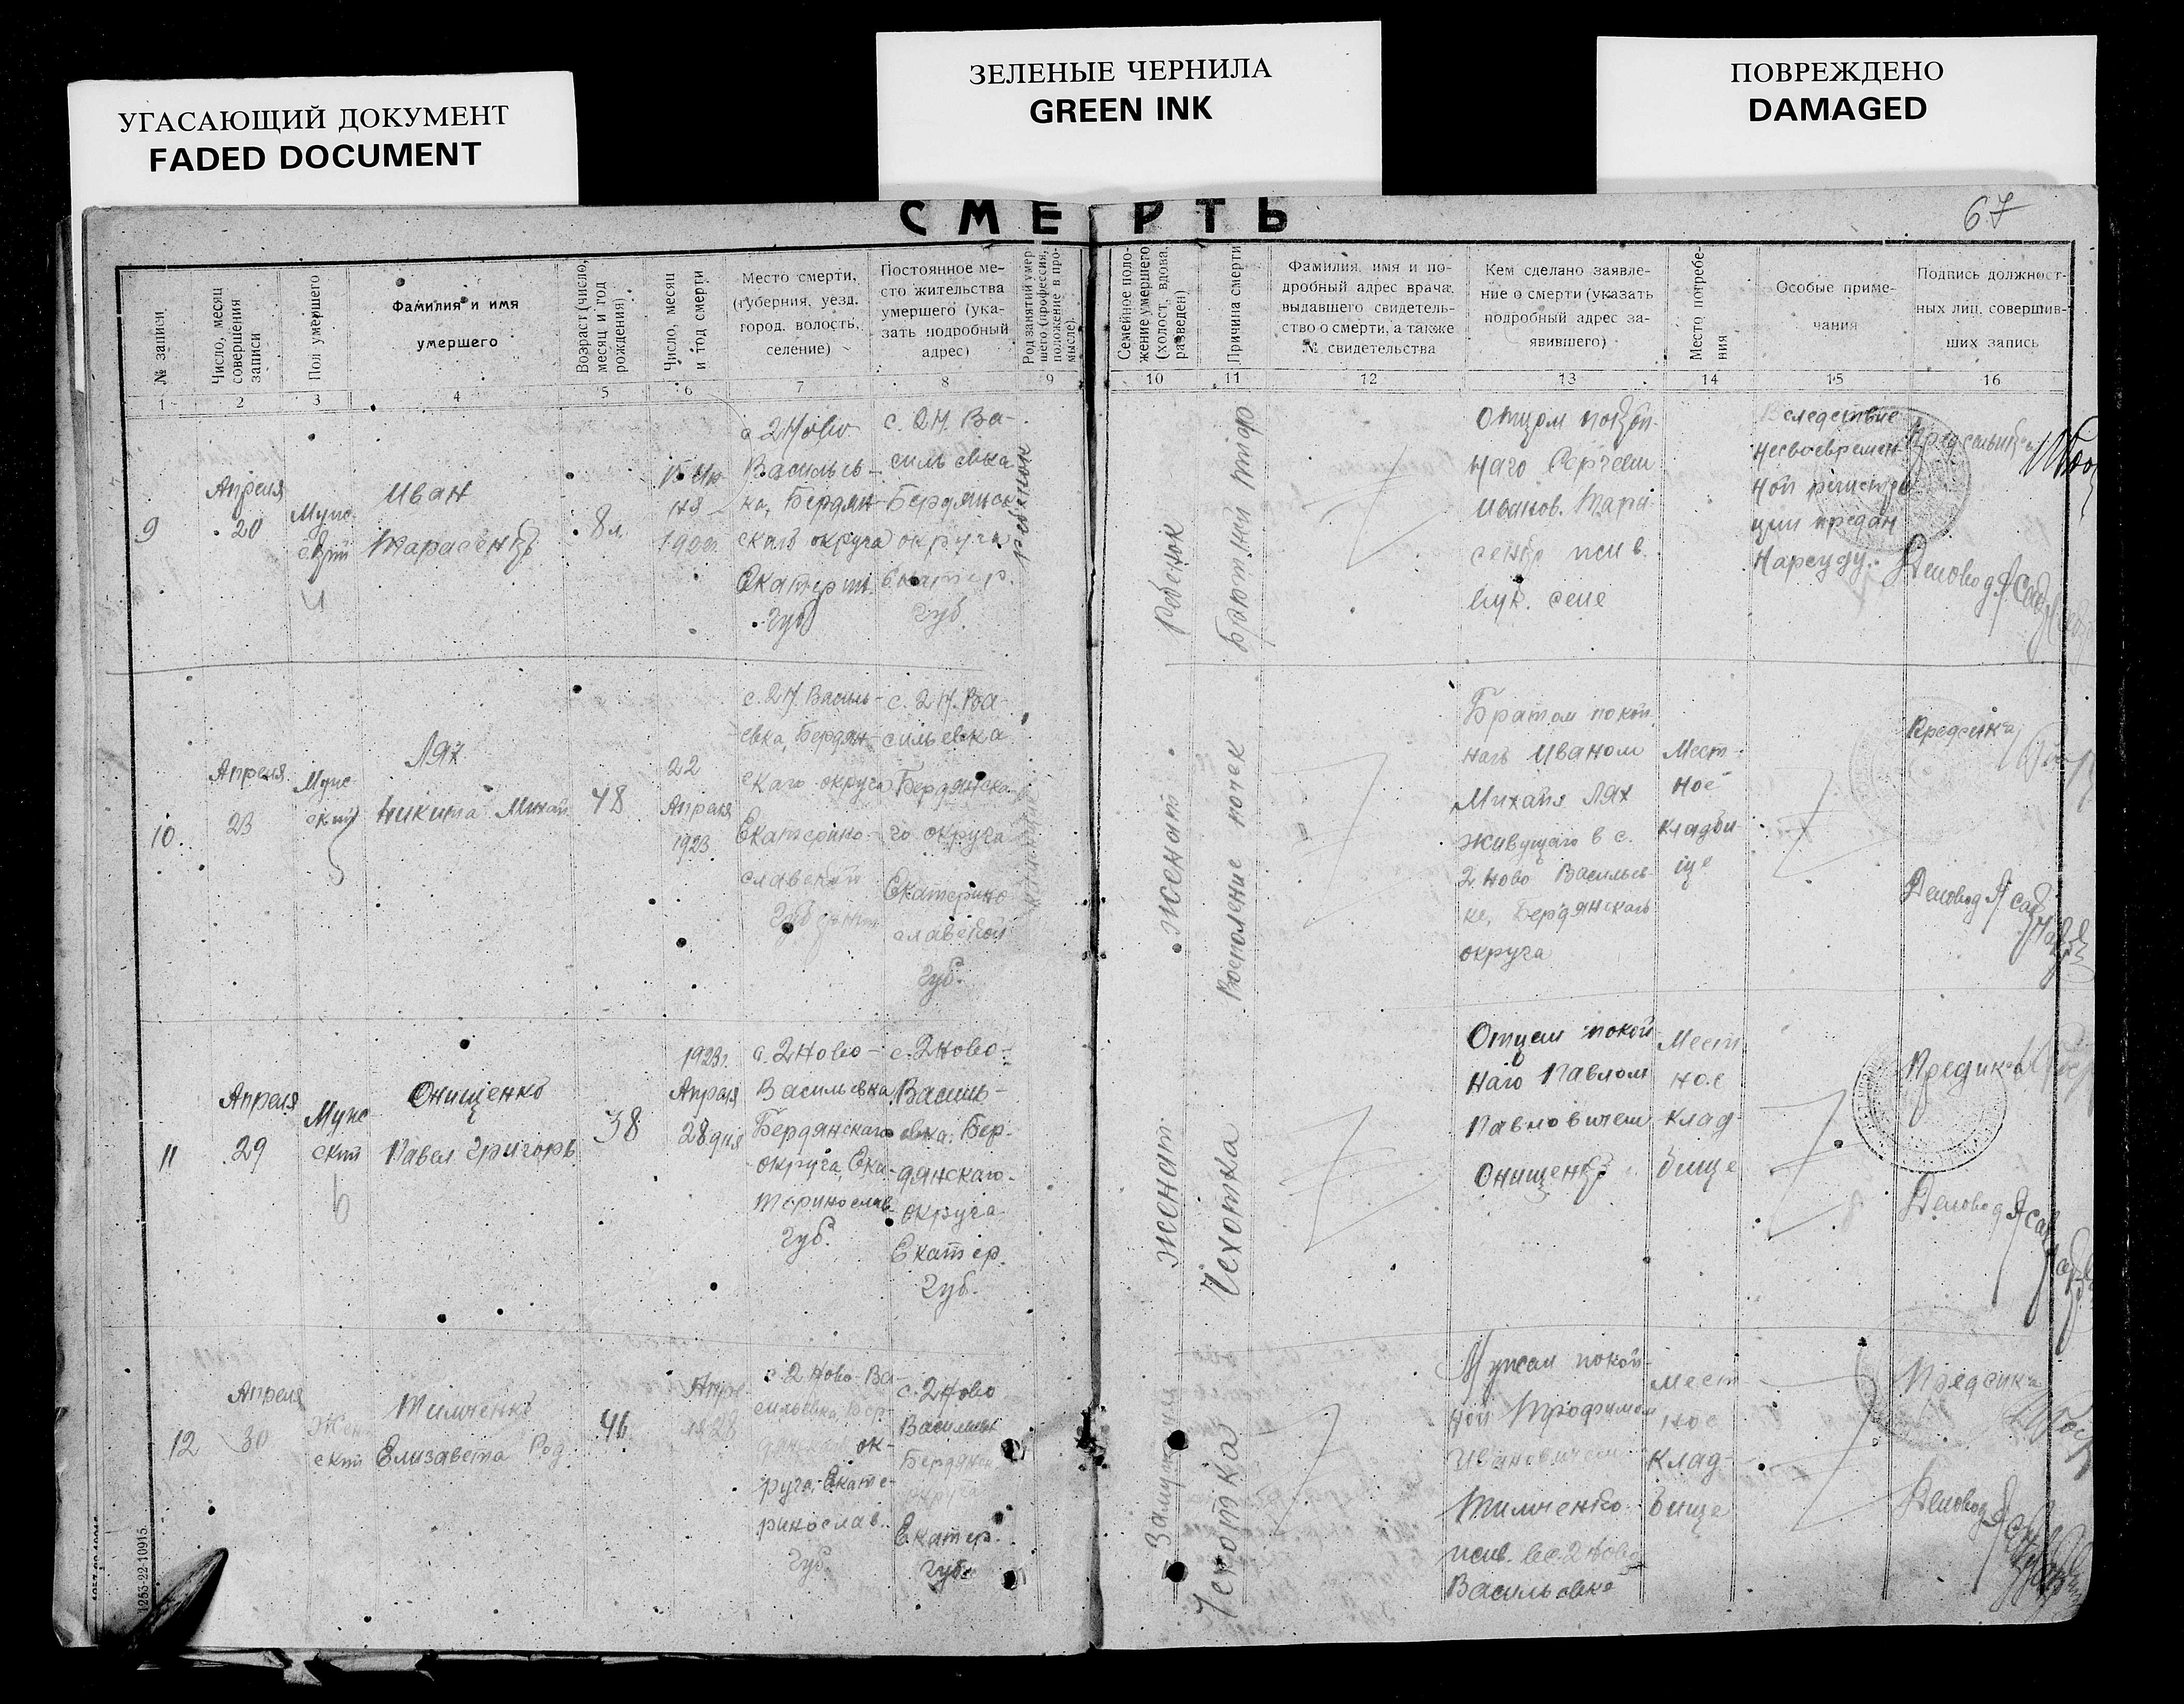 УГАСАЮЩИЙ ДОКУМЕНТ
FADED DOCUMENT
ЗЕЛЕНЫЕ ЧЕРНИЛА
GREEN INK
ПОВРЕЖДЕНО
DAMAGED
67
СМЕРТЬ
№ записи
Число, месяц
совершения
записи
Пол умершего
Фамилия и имя
умершего
Возраст (число,
месяц и год
рождения)
Число, месяц
и год смерти
Место смерти,
(губерния, уезд,
город, волость,
селение)
Постоянное ме-
сто жительства
умершего (ука-
зать подробный
адрес)
Род занятий умер
шего (профессия,
положение в про-
мысле).
Семейное поло-
жение умершего
(холост, вдова,
разведен)
Причина смерти
Фамилия, имя и по-
дробный адрес врача,
выдавшего свидетель-
ство о смерти, а также
№ свидетельства
Кем сделано заявле-
ние о смерти (указать
подробный адрес за-
явившего)
Место погребе-
ния
Особые приме-
чания
Подпись должност-
ных лиц, совершив-
ших запись
1 2 3 4 5 6 7 8 9 10 11 12 13 14 15 16
9
Апреля
20
Муж
ской
Иван
Тарасенко
8 л
с. 2 Ново
Василь ев-
ка, Бердян
скаго округа
Екатерин.
губ
с. 2 Н. Ва-
силь евка
Бердянск
округа
Екатер.
губ.
ребенок
Ребенок
Брюшной тиф
Отцом покой-
наго
Иванов. Тара
сенко жив.
сене
Вследствие
несвоевремен
ной регистра
ции предан
Нарсуду.
Деловод
10.
Апреля
23
Муж
ской
Лях
Никита Михай
48
22
Апреля
1923
с. 2 Н. Василь-
евка, Бердян-
скаго округа
Екатерино-
славской
губ
с. 2 Н. Ва-
сильевка
Бердянска-
го округа
Екатерино
славской
губ.
женат
Воспаление почек
Братом покой.
наго Иваном
Михайл Лях
живущаго в с.
2 Ново Васильев
ке, Бердянскаго
округа
Мест-
ное
кладби
ще
Предсика
Деловод
11
Апреля
29
Муж
ской
Онищенко
Павел Григорь
38
1923г.
Апреля
28 дня
с. 2 Ново-
Васильевка
Бердянскаго
округа, Ека-
теринослав
губ.
с. 2 Ново-
Василь-
евка. Бер-
дянскаго
округа
Екатер.
губ.
женат
Чехотка
Отцем покой
наго Павлом
Павловичем
Онищенко
Мест
ное
клад-
бище
Предика
Деловод
12
Апреля
30
Жен
ский
Тимченко
Елизавета Род
46
Апре
с 2 Ново-Ва-
сильевка, Бер-
ок-
руга, Екате-
ринослав.
губ.
с. 2 Ново
Васильев
Бердянск
Екатер.
губ.
Замужняя
Чехотка
Мужем покой-
ной Трофимом
Ивановичем
Тимченко
жив. в с. 2 Ново
Васильевке
Мест
ное
клад-
бище
Предсика
Деловод
1253-22-10915